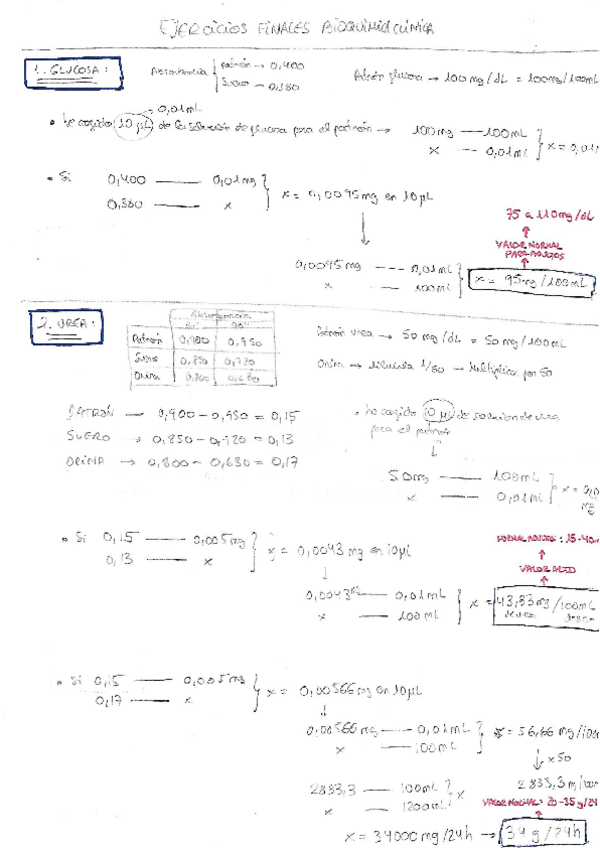 EJERCICIOS FINALES BIOQUÍMICA CLÍNICA
1. GLUCOSA:
Absorbancia { patrón → 0,400
Suero → 0,380
Patrón glucosa → 100 mg/dL = 100mg/100mL
= 0,01mL
• he cogido 10 µL de la solución de glucosa para el patrón → 100mg — 100mL
x — 0,01mL } x = 0,01
• Si 0,400 — 0,01mg
0,380 — x } x = 0,0095mg en 10µL
75 a 110mg/dL
VALOR NORMAL
PARA ADULTOS
0,0095mg --- 0,01mL
x — 100mL } x = 95mg/100mL
2. UREA:
Absorbancia
Patrón 0,900 0,750
Suero 0,850 0,720
Orina 0,800
Patrón urea → 50 mg/dL = 50mg/100mL
Orina → diluida 1/50 → Multiplica por 50
PATRÓN → = 0,15
SUERO → 0,850 - 0,720 = 0,13
ORINA → 0,800 - 0,630 = 0,17
• he cogido 10 µL de solución de urea
para el patrón
50mg — 100mL
x — 0,01mL } x =
mg
• Si 0,15 — 0,005mg
0,13 — x } x = 0,0043mg en 10µL
NORMAL ADULTOS: 15-40
VALOR ALTO
0,0043 — 0,01mL
x — 100mL } x = 43,33mg/100mL
• Si 0,15 — 0,005mg
0,17 — x } x = 0,00566mg en 10µL
0,00566mg — 0,01mL
x — 100mL } x = 56,66 mg/100
↓ x50
2833,3 m
2833,3 — 100mL
x — 1200mL } x
VALOR NORMAL: 20-35 g/24
x = 34000mg/24h → 34g/24h